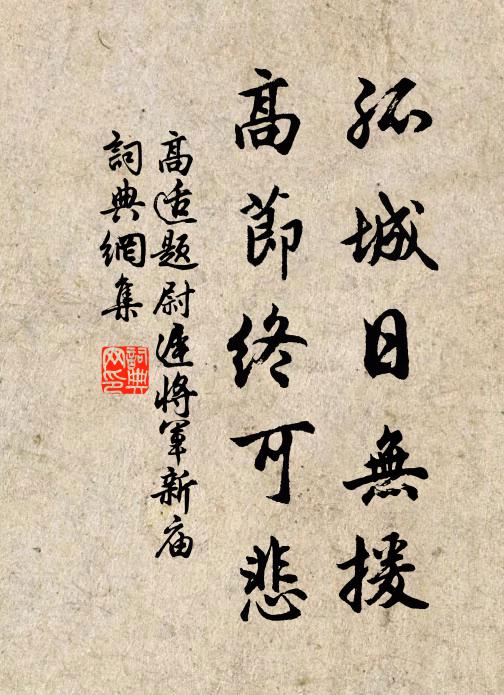 孤城日無援
高節終可悲
高适題尉遲將軍新庙
詞典網集
詞典網印